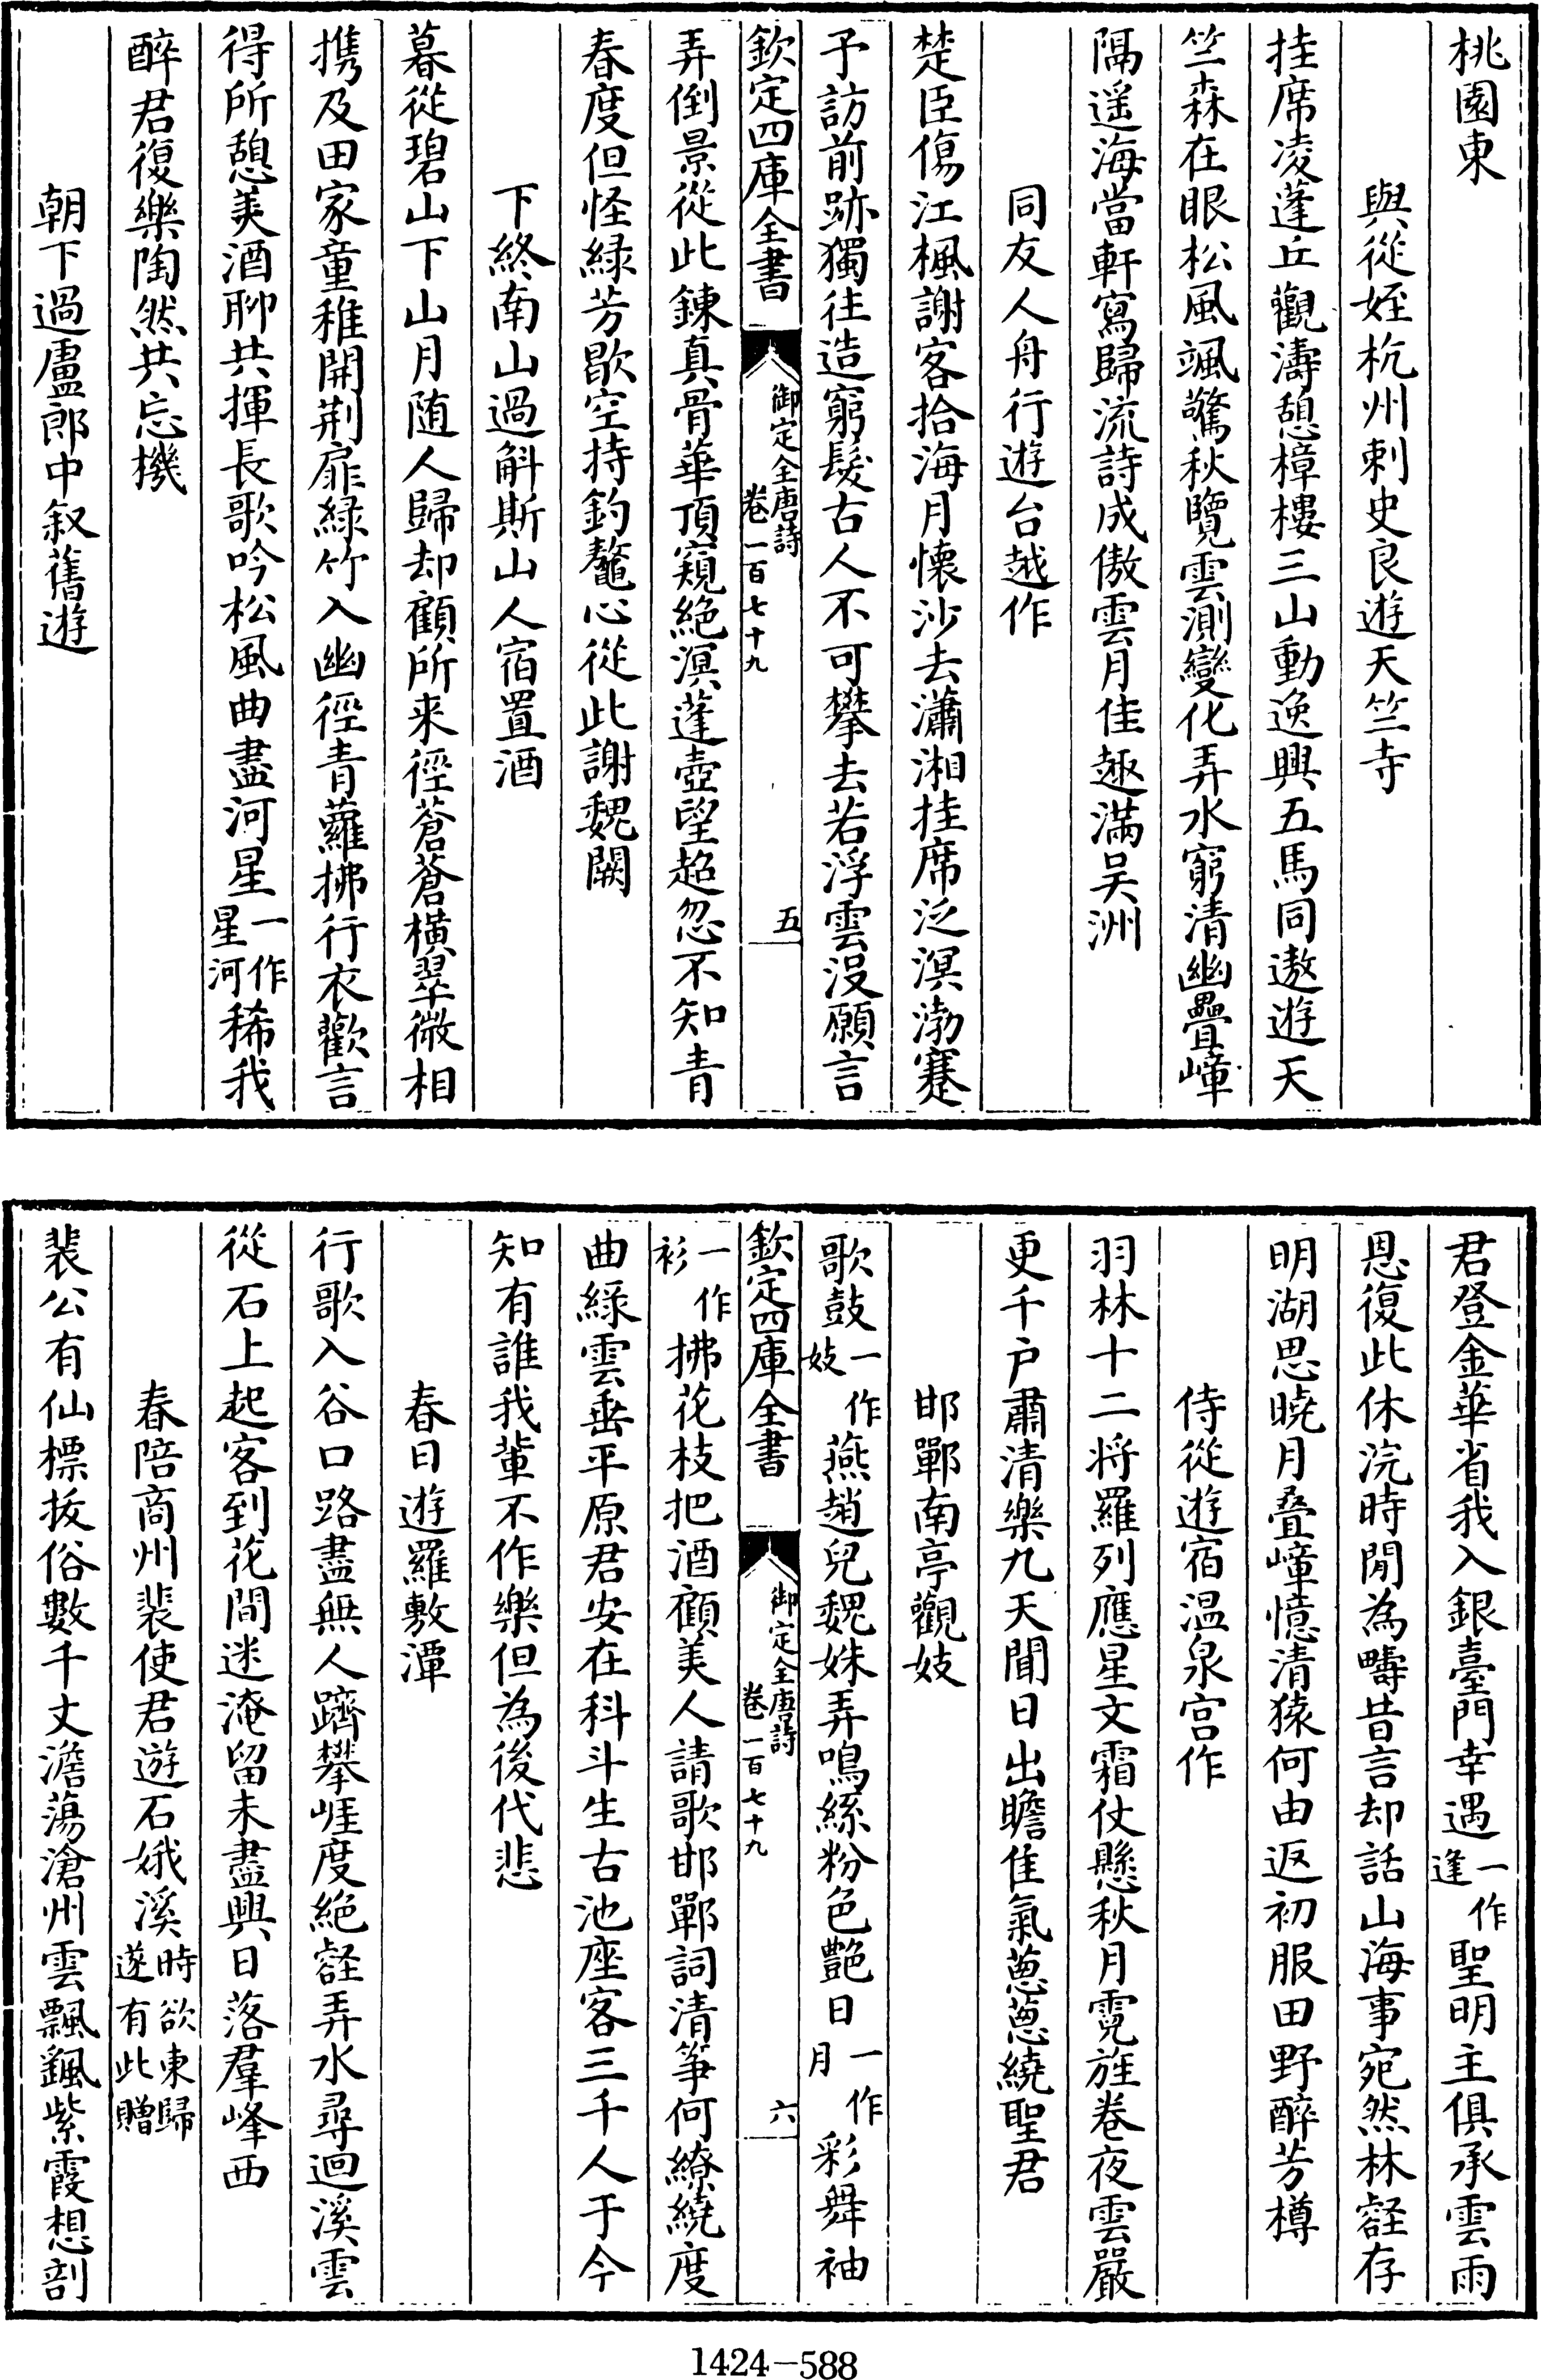 桃園東
與從姪杭州刺史良遊天竺寺
挂席凌蓬丘觀濤憩樟樓三山動逸興五馬同遨遊天
竺森在眼松風颯驚秋覽雲測變化弄水窮清幽疊嶂
隔遥海當軒寫歸流詩成傲雲月佳趣滿吴洲
同友人舟行遊台越作
楚臣傷江楓謝客拾海月懷沙去瀟湘挂席泛溟渤蹇
予訪前跡獨往造窮髮古人不可攀去若浮雲没願言
欽定四庫全書
御定全唐詩
卷一百七十九
五
弄倒景從此錬真骨華頂窺絶溟蓬壺望超忽不知青
春度但怪緑芳歇空持釣鼇心從此謝魏闕
下終南山過斛斯山人宿置酒
暮從碧山下山月随人歸却顧所来徑蒼蒼横翠微相
携及田家童稚開荆扉緑竹入幽徑青蘿拂行衣歡言
得所憩美酒聊共揮長歌吟松風曲盡河星一作星河稀我
醉君復樂陶然共忘機
朝下過盧郎中叙舊遊
君登金華省我入銀臺門幸遇一作逢聖明主俱承雲雨
恩復此休浣時閒為疇昔言却話山海事宛然林壑存
明湖思曉月疊嶂憶清猿何由返初服田野醉芳樽
侍從遊宿温泉宫作
羽林十二将羅列應星文霜仗懸秋月霓旌卷夜雲嚴
更千户肅清樂九天聞日出瞻佳氣葱葱繞聖君
邯鄲南亭觀妓
歌鼓一作妓燕趙兒魏姝弄鳴絲粉色艷日一作月彩舞袖
欽定四庫全書
御定全唐詩
卷一百七十九
六
一作衫拂花枝把酒顧美人請歌邯鄲詞清筝何繚繞度
曲緑雲垂平原君安在科斗生古池座客三千人于今
知有誰我輩不作樂但為後代悲
春日遊羅敷潭
行歌入谷口路盡無人躋攀崖度絶壑弄水尋迴溪雲
從石上起客到花間迷淹留未盡興日落羣峰西
春陪商州裴使君遊石娥溪時欲東歸遂有此贈
裴公有仙標拔俗數千丈澹蕩滄州雲飄颻紫霞想剖
1424-588